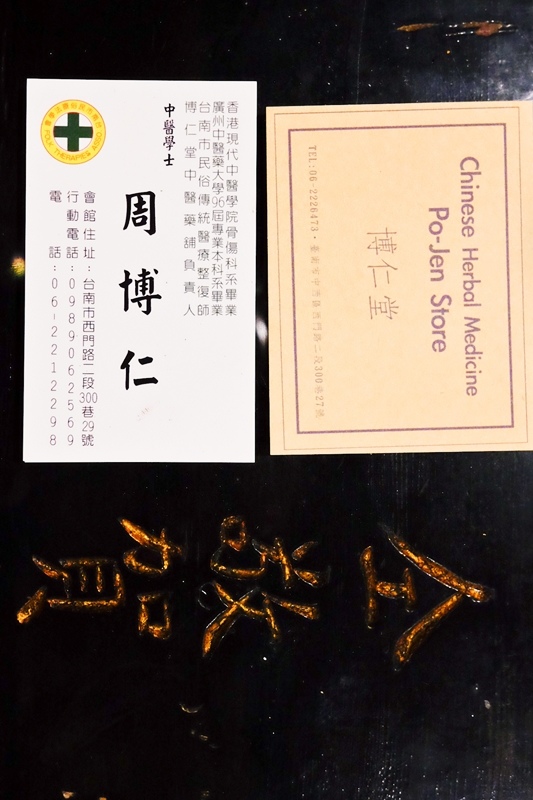 香港現代中醫學院骨傷科系畢業
廣州中醫藥大學96屆專業本科系畢業
台南市民俗傳統醫療整復師
博仁堂中醫藥舖負責人
中醫學士
周博仁
會館住址：台南市西門路二段300巷29號
行動電話：0989062569
電話：06-2212298
Chinese Herbal Medicine
Po-Jen Store
博仁堂
TEL:06-2226473・臺南市中西區西門路二段300巷27號
仝敬賀